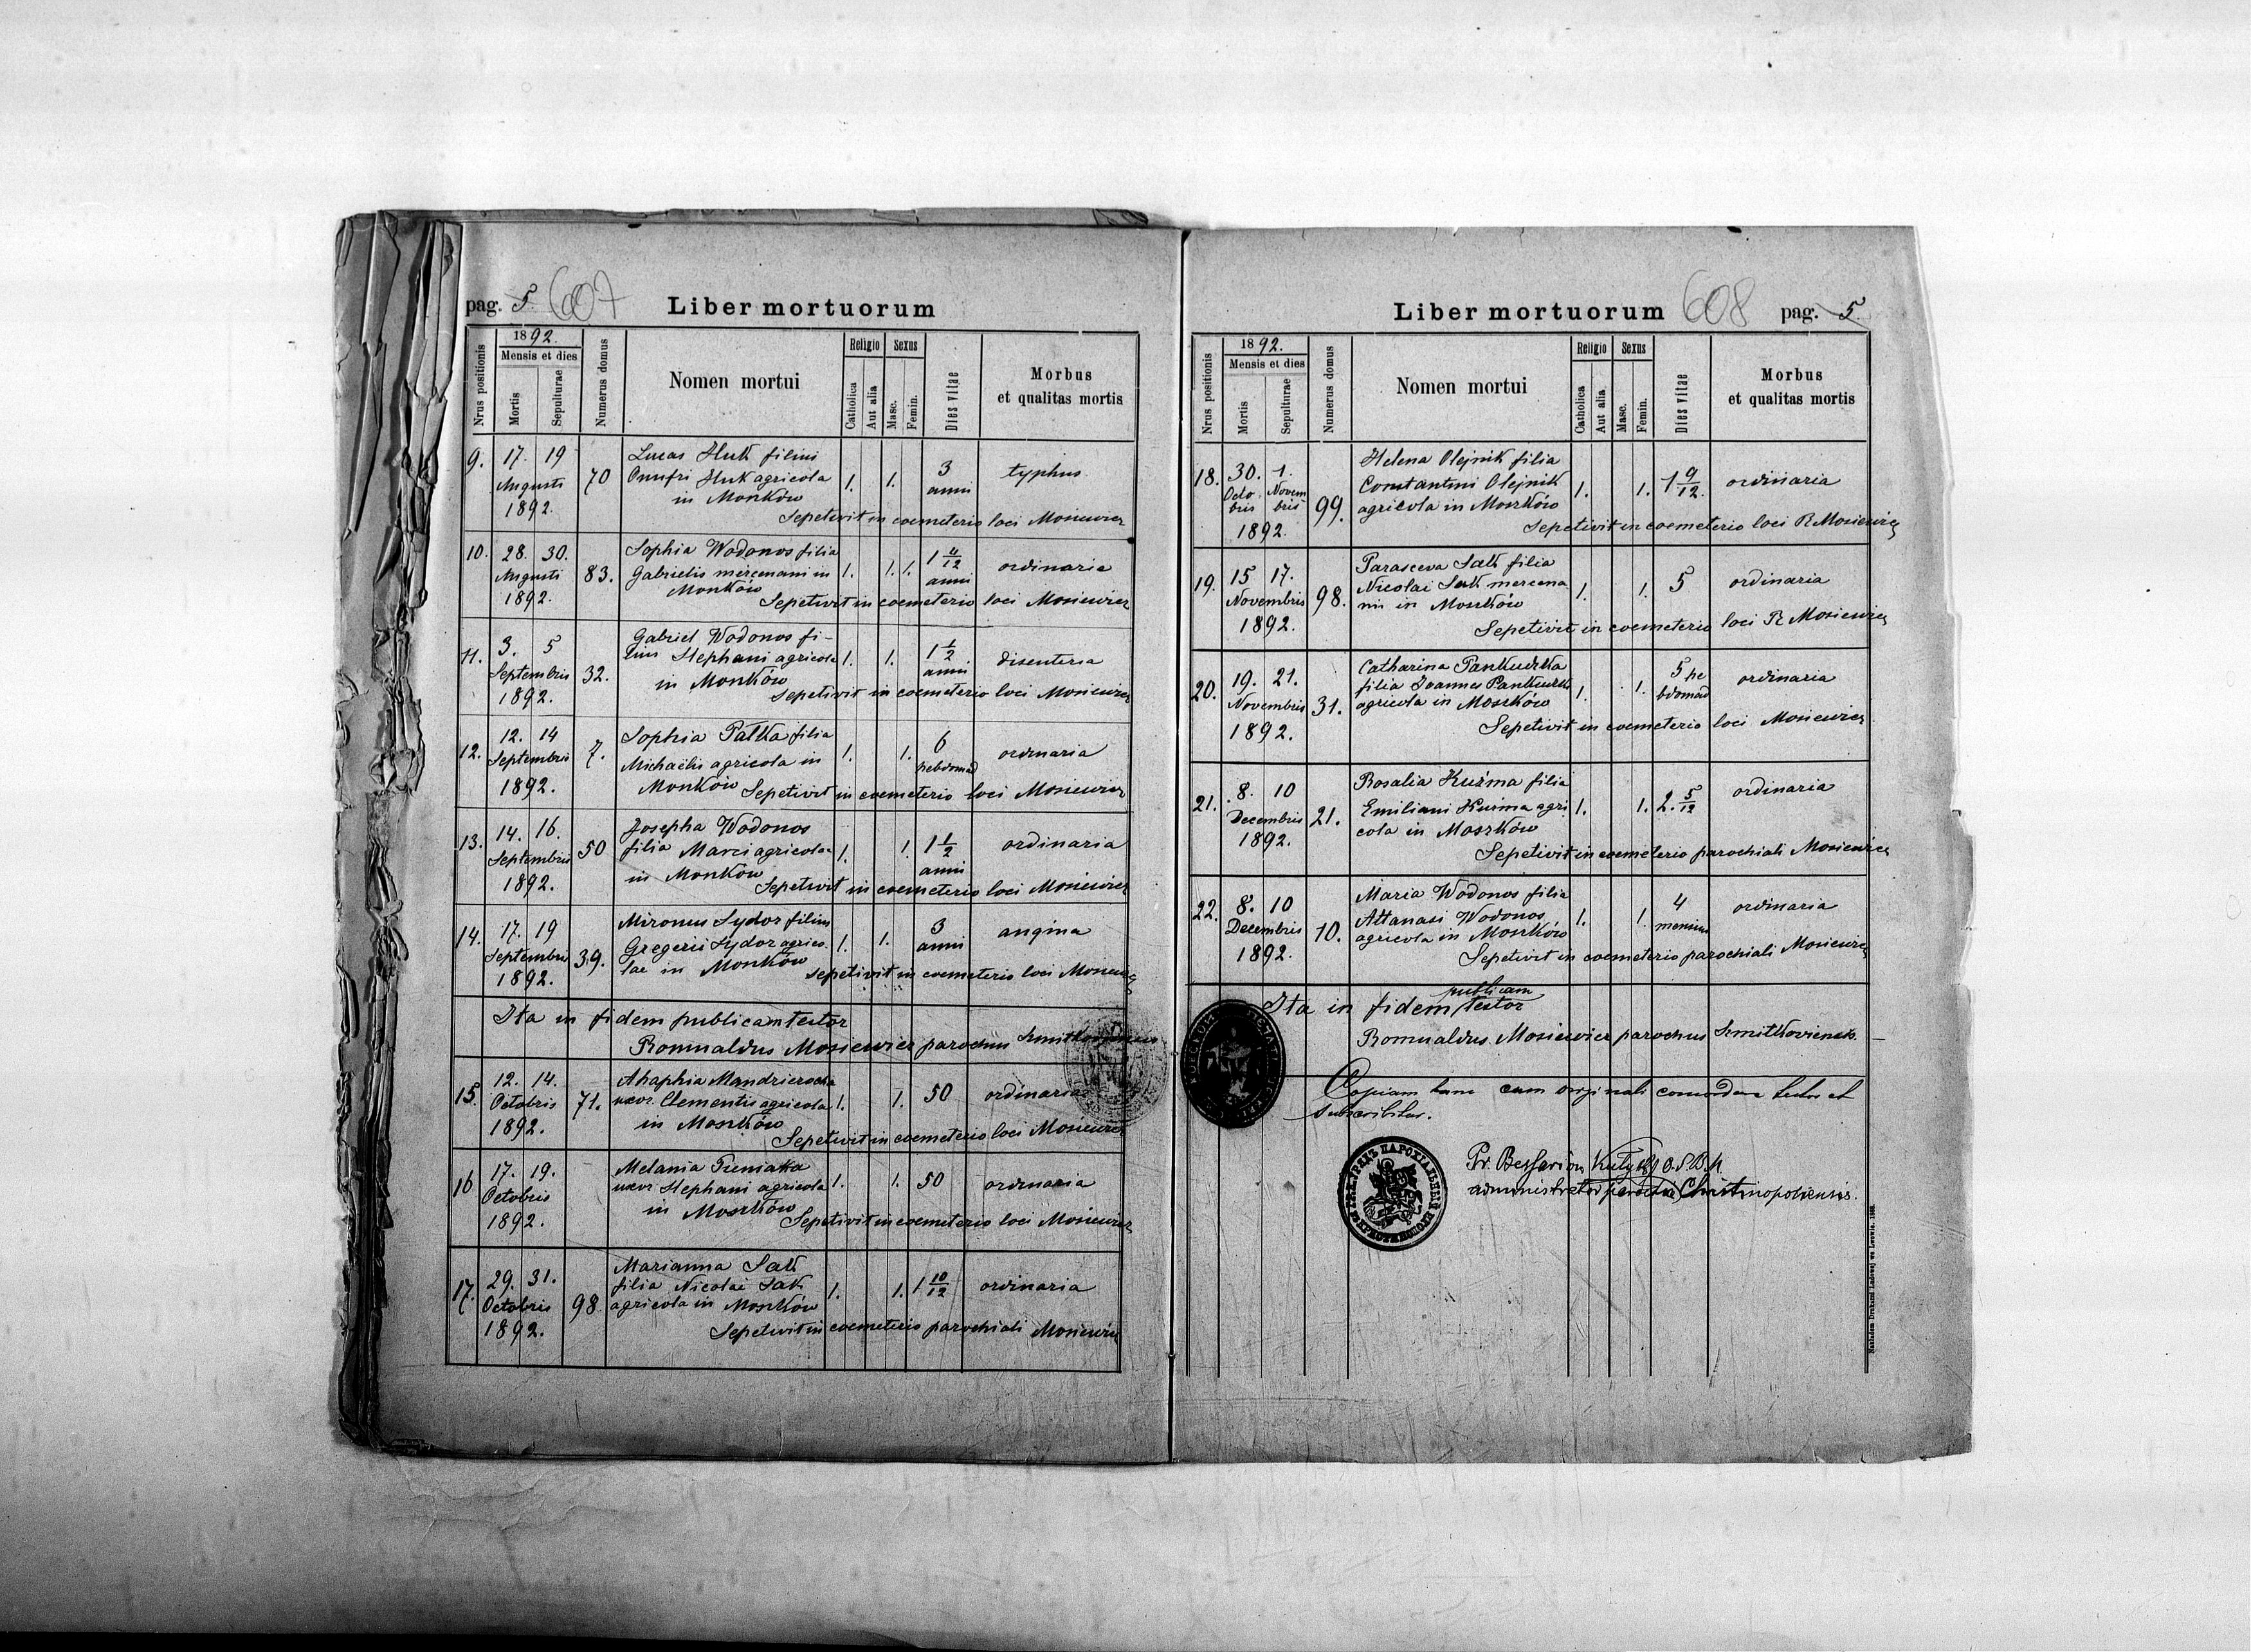 pag. 5 607
Liber mortuorum
Nrus positionis
1892.
Mensis et dies
Mortis
Sepulturae
Numerus domus
Nomen mortui
Religio
Catholica
Aut alia
Sexus
Masc.
Femin.
Dies vitae
Morbus
et qualitas mortis
9. 17. 19
Augusti
1892.
70
Lucas Huk filius
Onufri Huk agricola
in Moszków
1. 1.
3
anni
typhus
Sepetivit in coemeterio loci Mosiewicz
10. 28. 30.
Augusti
1892.
83.
Sophia Wodonos filia
Gabrielis mercenani in
Moszków
1. 1. 1.
1 4/12
anni
ordinaria
Sepetivit in coemeterio loci Mosiewicz
11. 3. 5
Septembris
1892.
32.
Gabriel Wodonos fi-
lius Stephani agricola
in Moszków
1. 1.
1 1/2
anni
disenteria
Sepetivit in coemeterio loci Mosiewicz
12. 12. 14
Septembris
1892.
7.
Sophia Pałka filia
Michaelis agricola in
Moszków
1. 1.
6
hebdomad
ordinaria
Sepetivit in coemeterio loci Mosiewicz
13. 14. 16.
Septembris
1892.
50
Josepha Wodonos
filia Marci agricola
in Moszków
1. 1.
1 1/2
anni
ordinaria
Sepetivit in coemeterio loci Mosiewicz
14. 17. 19
Septembris
1892.
39.
Mironus Sydor filius
Gregerii Sydor agrico-
lae in Moszków
1. 1.
3
anni
angina
sepetivit in coemeterio loci Mosiewicz
Ita in fidem publicam testor
Romualdus Mosiewicz parochus
15. 12. 14.
Octobris
1892.
71.
Ahaphia
uxor. Clementis agricola
in Moszków
1. 1.
50
ordinaria
Sepetivit in coemeterio loci Mosiewicz
16 17. 19.
Octobris
1892.
Melania
uxor Stephani agricola
in Moszków
1. 1.
50
ordinaria
Sepetivit in coemeterio loci Mosiewicz
17. 29. 31.
Octobris
1892.
98.
Marianna Sak
filia Nicolai Sak
agricola in Moszków
1. 1.
1 10/12
ordinaria
Sepetivit in coemeterio parochiali Mosiewicz
Liber mortuorum
608 pag. 5
Nrus positionis
1892.
Mensis et dies
Mortis
Sepulturae
Numerus domus
Nomen mortui
Religio
Catholica
Aut alia
Sexus
Masc.
Femin.
Dies vitae
Morbus
et qualitas mortis
18. 30. 1.
Octo Novem
bris bris
1892.
99.
Helena Olejnik filia
Constantini Olejnik
agricola in Moszków
1. 1.
1 9/12.
ordinaria
Sepetivit in coemeterio loci R Mosiewicz
19. 15 17.
Novembris
1892.
98.
Parasceva Sak filia
Nicolai Sak mercena
nii in Moszków
1. 1.
5
ordinaria
Sepetivit in coemeterio loci R Mosiewicz
20. 19. 21.
Novembris
1892.
31.
Catharina
filia Joannes
agricola in Moszków
1. 1.
5 he
bdomad
ordinaria
Sepetivit in coemeterio loci Mosiewicz
21. 8. 10
Decembris
1892.
21.
Rosalia Kuźma filia
Emiliani Kuźma agri
cola in Moszków
1. 1.
2. 5/12
ordinaria
Sepetivit in coemeterio parochiali Mosiewicz
22. 8. 10
Decembris
1892.
10.
Maria Wodonos filia
Attanasi Wodonos
agricola in Moszków
1. 1.
4
mensium
ordinaria
Sepetivit in coemeterio parochiali Mosiewicz
publicam
Ita in fidem testor
Romualdus Mosiewicz parochus
Copiam hanc cum originali concordare testor et
subscribitur.
Pr. Bessarion O.S.B.M.
administrator parochiae Christinopoliensis.
Nakładem Drukarni Ludowej we Lwowie.